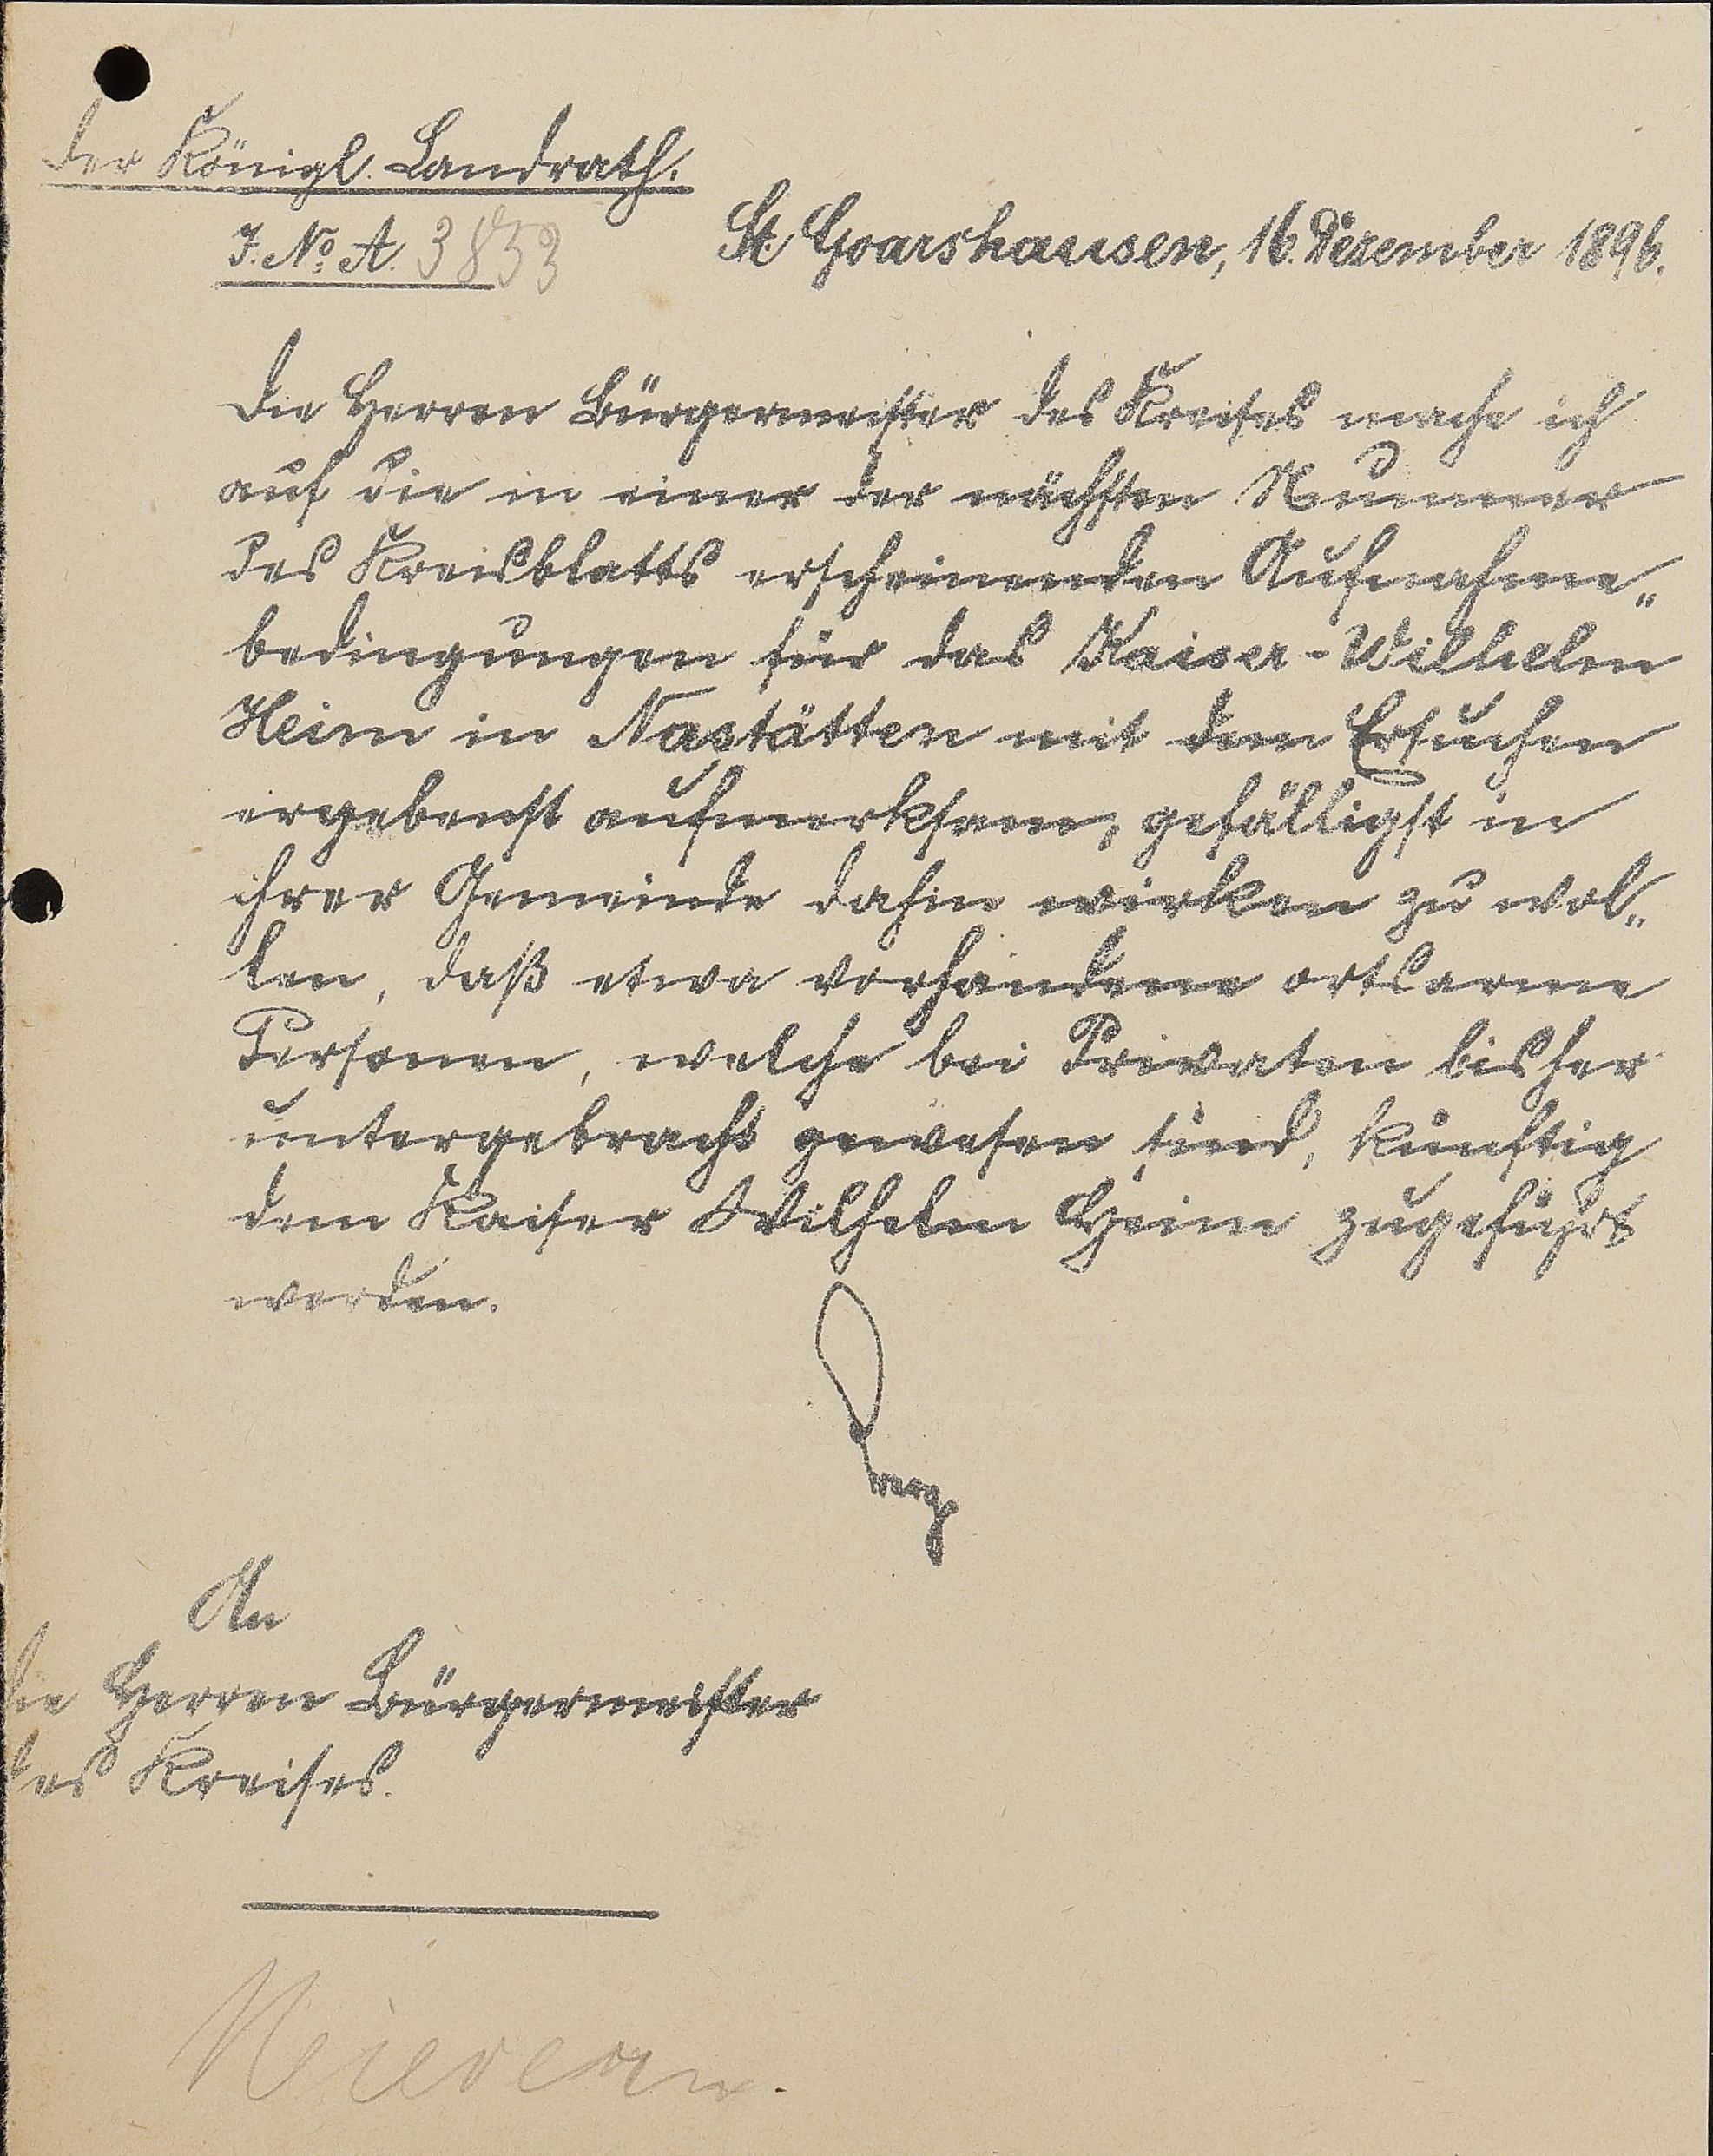 Der Königl. Landrath.
J. No A. 3853
St. Goarshausen, 16. Dezember 1896.
Die Herren Bürgermeister des Kreises mache ich
auf die in einer der nächsten Nummer
des Kreisblatts erscheinenden Aufnahme„
bedingungen für das Kaiser-Wilhelm
Heim in Nastätten mit dem Ersuchen
ergebenst aufmerksam, gefälligst in
ihrer Gemeinde dahin wirken zu wol„
len, daß etwa vorhandene ortsarme
Personen, welche bei Privaten bisher
untergebracht gewesen sind, künftig
dem Kaiser Wilhelm Heim zugeführt
werden.
An
die Herren Bürgermeister
des Kreises.
Nievern.